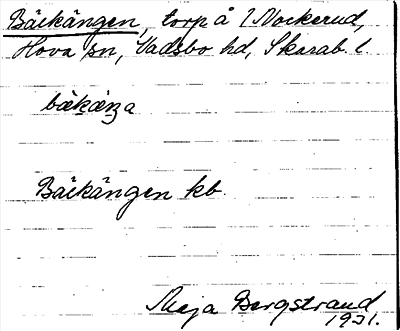 Bäckängen, torp å 1 Nockerud,
Hova sn, Vadsbo hd, Skarab. l.
Bäckängen kb.
Maja Bergstrand
1931.